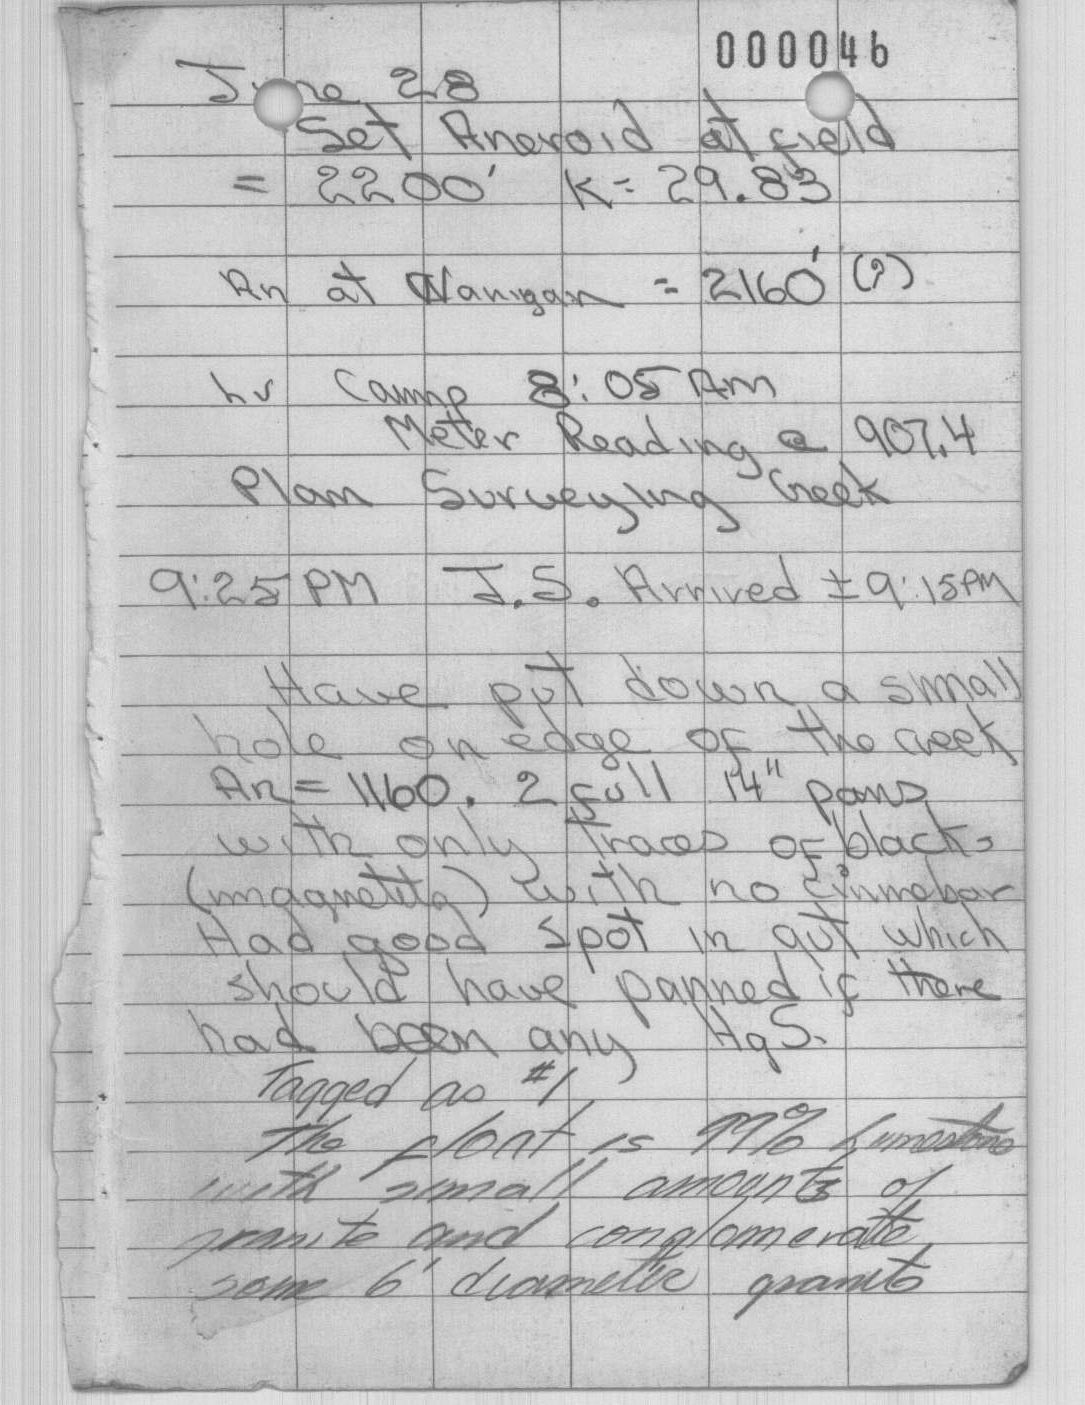 000046
June 28
Set Aneroid at field
= 2200' K = 29.83
An at Wanigan = 2160' (?)
Lv Camp 8:05 AM
Meter Reading @ 907.4
Plan Surveying Creek
9:25 PM J.S. Arrived ± 9:15 PM
Have put down a small
hole on edge of the creek
An = 1160. 2 full 14" pans
with only traces of blacks
(magnetite) with no cinnebar
Had good spot in gut which
should have panned if there
had been any HgS.
Tagged as #1
The float is 99% Limestone
with small amounts of
granite and conglomerate
some 6' diametic granite